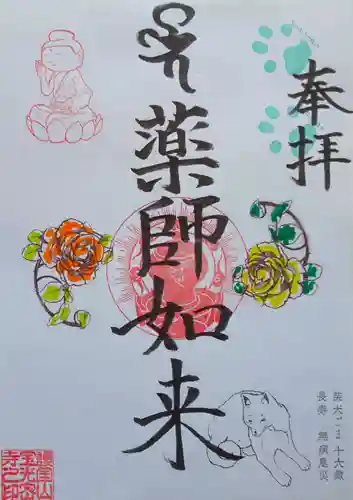 奉拝
薬師如来
柴犬こま 十六歳
長寿 無病息災